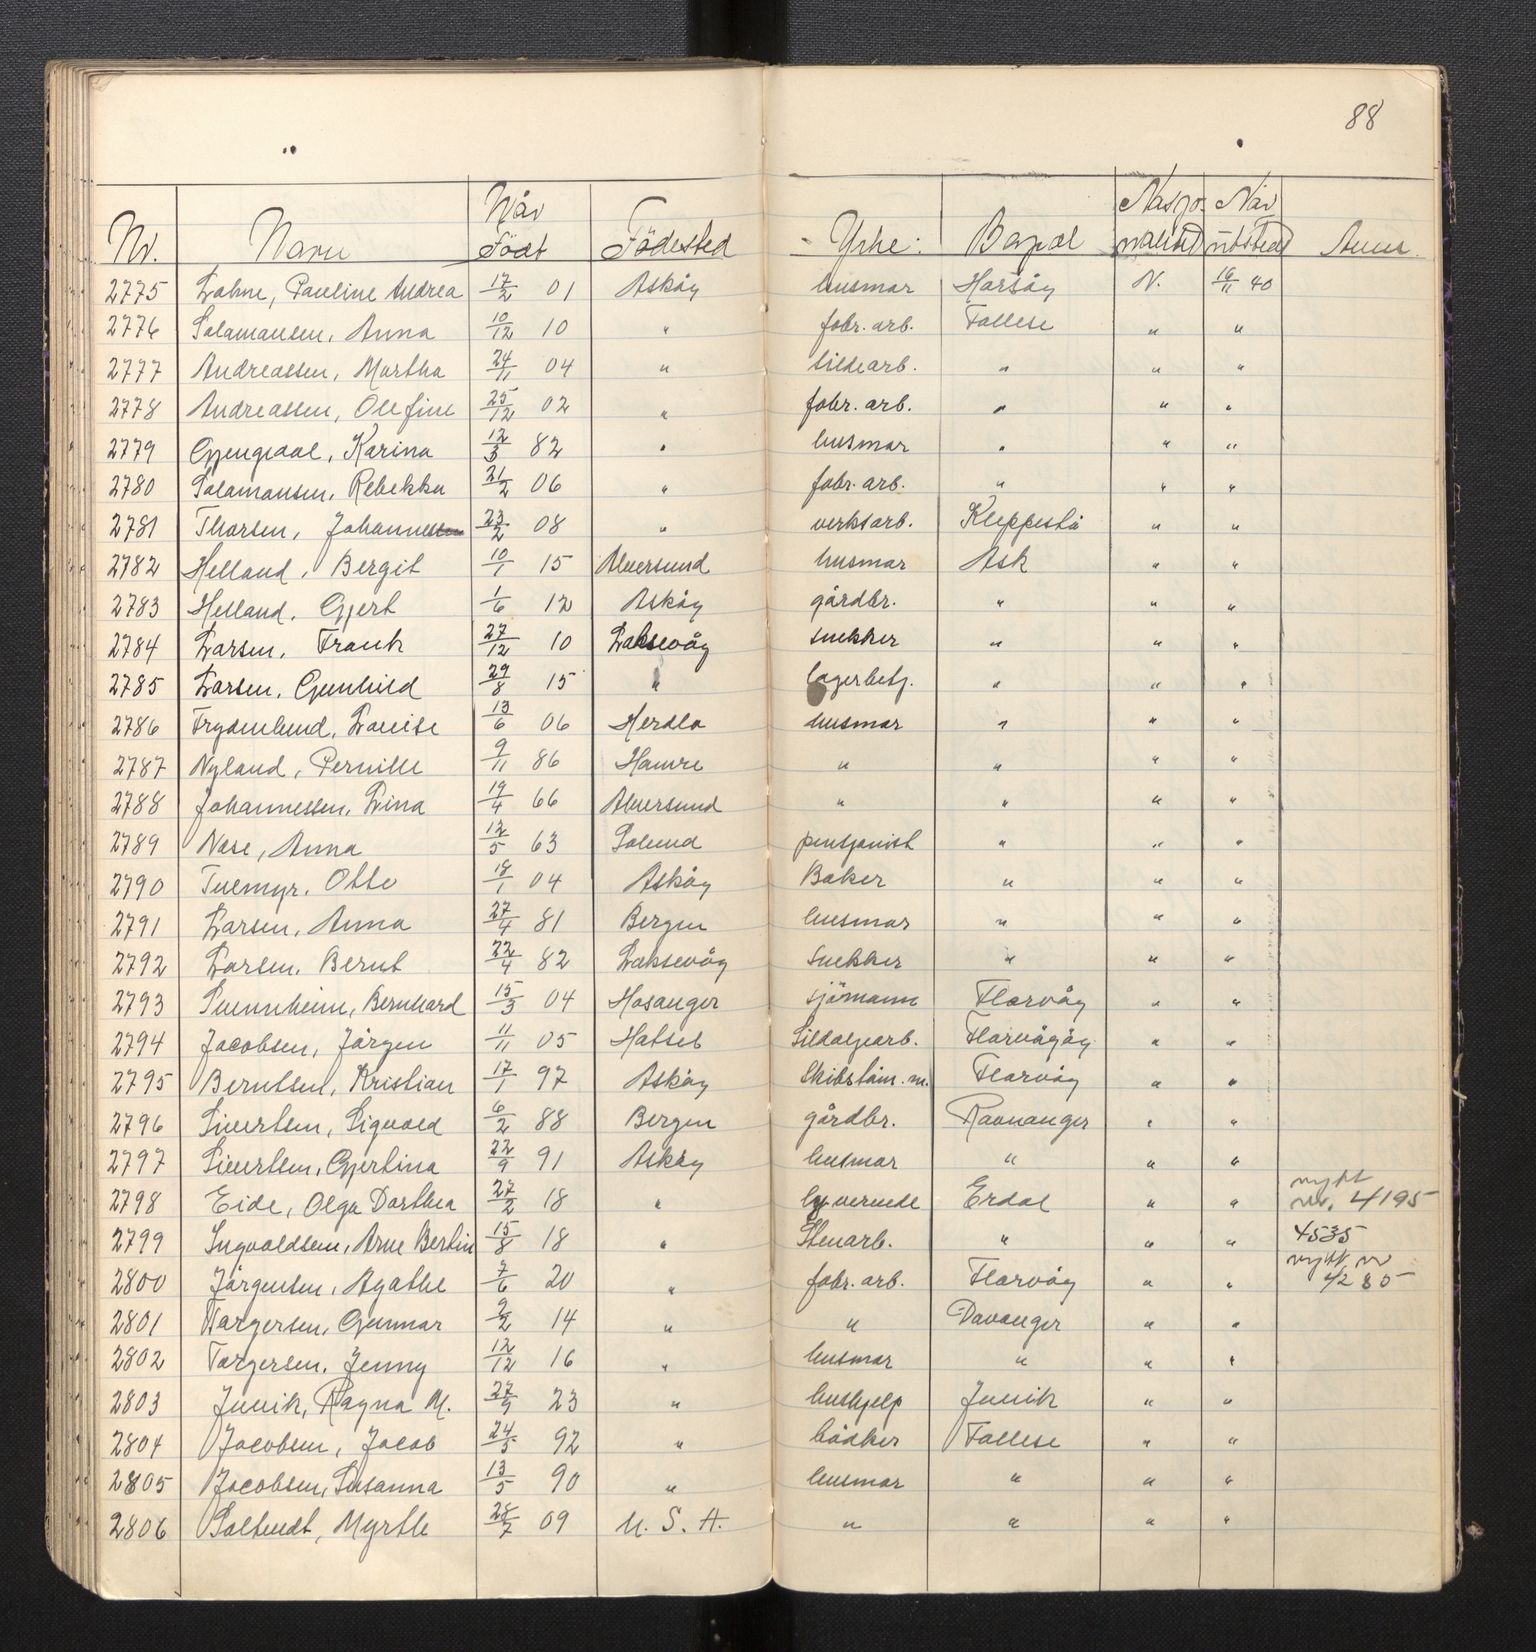 88
Nr. Navn Når Födt Födested Yrke: Bopæl Nasjonalitet Når utsted Anm.
2775 Lohne, Pauline Andrea 17/2 01 Asköy husmor Horsöy N. 16/11 40
2776 Salamonsen, Anna 10/12 10 " fabr. arb. Follese " "
2777 Andreassen, Martha 24/11 04 " sildearb. " " "
2778 Andreassen, Olefine 25/12 02 " fabr. arb. " " "
2779 Gjengedal, Karina 12/3 82 " husmor " " "
2780 Salamonsen, Rebekka 21/2 06 " fabr. arb. " " "
2781 Thorsen, Johannes 23/2 08 " verksarb. Kleppestö " "
2782 Helland, Bergit 10/1 15 Alversund husmor Ask " "
2783 Helland, Gjert 1/6 12 Asköy gårdbr. " " "
2784 Larsen, Frank 27/12 10 Laksevåg snekker " " "
2785 Larsen, Gunhild 29/8 15 " lagerbetj. " " "
2786 Frydenlund, Louise 13/6 06 Herdla husmor " " "
2787 Nyland, Pernille 9/11 86 Hamre " " " "
2788 Johannessen, Lina 19/4 66 Alversund " " " "
2789 Nese, Anna 12/5 63 Solund pensjonist " " "
2790 Tuemyr, Otto 18/1 04 Asköy Baker " " "
2791 Larsen, Anna 27/4 81 Bergen husmor " " "
2792 Larsen, Bernt 22/4 82 Laksevåg Snekker " " "
2793 Svennheim, Bernhard 15/3 04 Hosanger sjömann Florvåg " "
2794 Jacobsen, Jörgen 11/11 05 Hatsel Sildoljearb. Florvågöy " "
2795 Berntsen, Kristian 17/1 97 Asköy Skibstöm.m. Florvåg " "
2796 Sivertsen, Sigvald 6/2 88 Bergen gårdbr. Ravnanger " "
2797 Sivertsen, Gjertina 22/9 91 Asköy husmor " " "
2798 Eide, Olga Dorthea 27/2 18 " hj.verende Erdal " " nytt nr. 4195
2799 Ingvaldsen, Arne Bertin 15/8 18 " Stenarb. " " " 4535
2800 Jörgensen, Agathe 7/6 20 " fabr. arb. Florvåg " " nytt nr 4280
2801 Torgersen, Gunnar 9/2 14 " " Davanger " "
2802 Torgersen, Jenny 12/12 16 " husmor " " "
2803 Juvik, Ragna M. 27/9 23 " hushjelp Juvik " "
2804 Jacobsen, Jacob 24/5 92 " bödker Follese " "
2805 Jacobsen, Susanna 13/5 90 " husmor " " "
2806 Saltvedt, Myrtle 28/7 09 U. S. A. " " " "